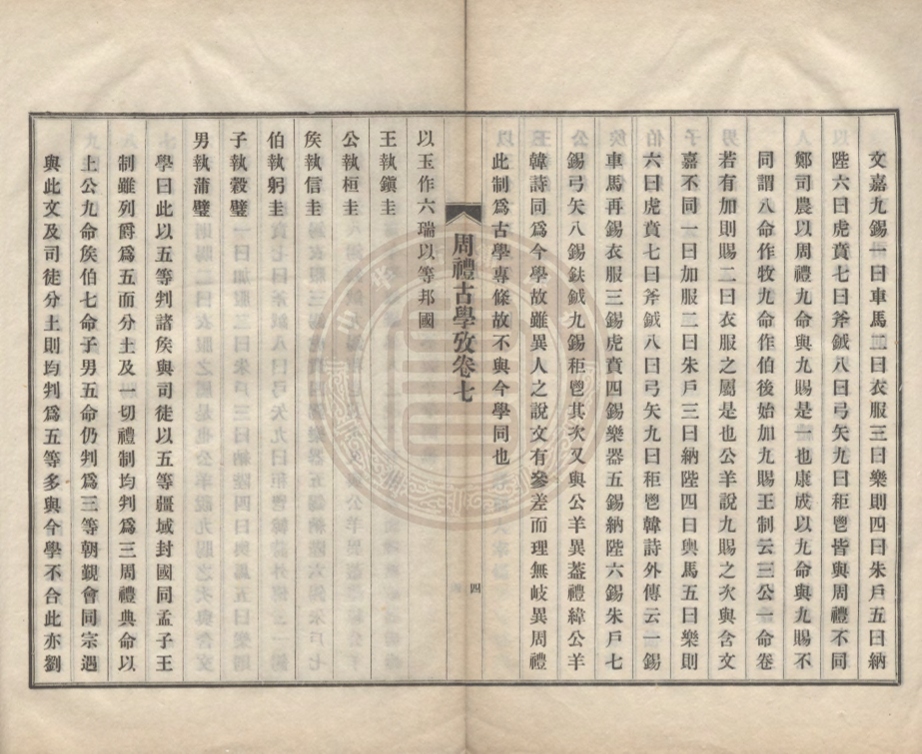 文嘉九錫一曰車馬二曰衣服三曰樂則四曰朱戶五曰納
陛六曰虎賁七曰斧鉞八曰弓矢九曰秬鬯皆與周禮不同
鄭司農以周禮九命與九賜是一也康成以九命與九賜不
同謂八命作牧九命作伯後始加九賜王制云三公一命卷
若有加則賜二曰衣服之屬是也公羊說九賜之次與含文
嘉不同一曰加服二曰朱戶三曰納陛四曰輿馬五曰樂則
六曰虎賁七曰斧鉞八曰弓矢九曰秬鬯韓詩外傳云一錫
車馬再錫衣服三錫虎賁四錫樂器五錫納陛六錫朱戶七
錫弓矢八錫鈇鉞九錫秬鬯其次又與公羊異葢禮緯公羊
韓詩同爲今學故雖異人之說文有參差而理無岐異周禮
此制爲古學專條故不與今學同也
周禮古學攷卷七
四
以玉作六瑞以等邦國
王執鎭圭
公執桓圭
矦執信圭
伯執躬圭
子執穀璧
男執蒲璧
學曰此以五等判諸矦與司徒以五等疆域封國同孟子王
制雖列爵爲五而分土及一切禮制均判爲三周禮典命以
上公九命矦伯七命子男五命仍判爲三等朝覲會同宗遇
與此文及司徒分土則均判爲五等多與今學不合此亦劉